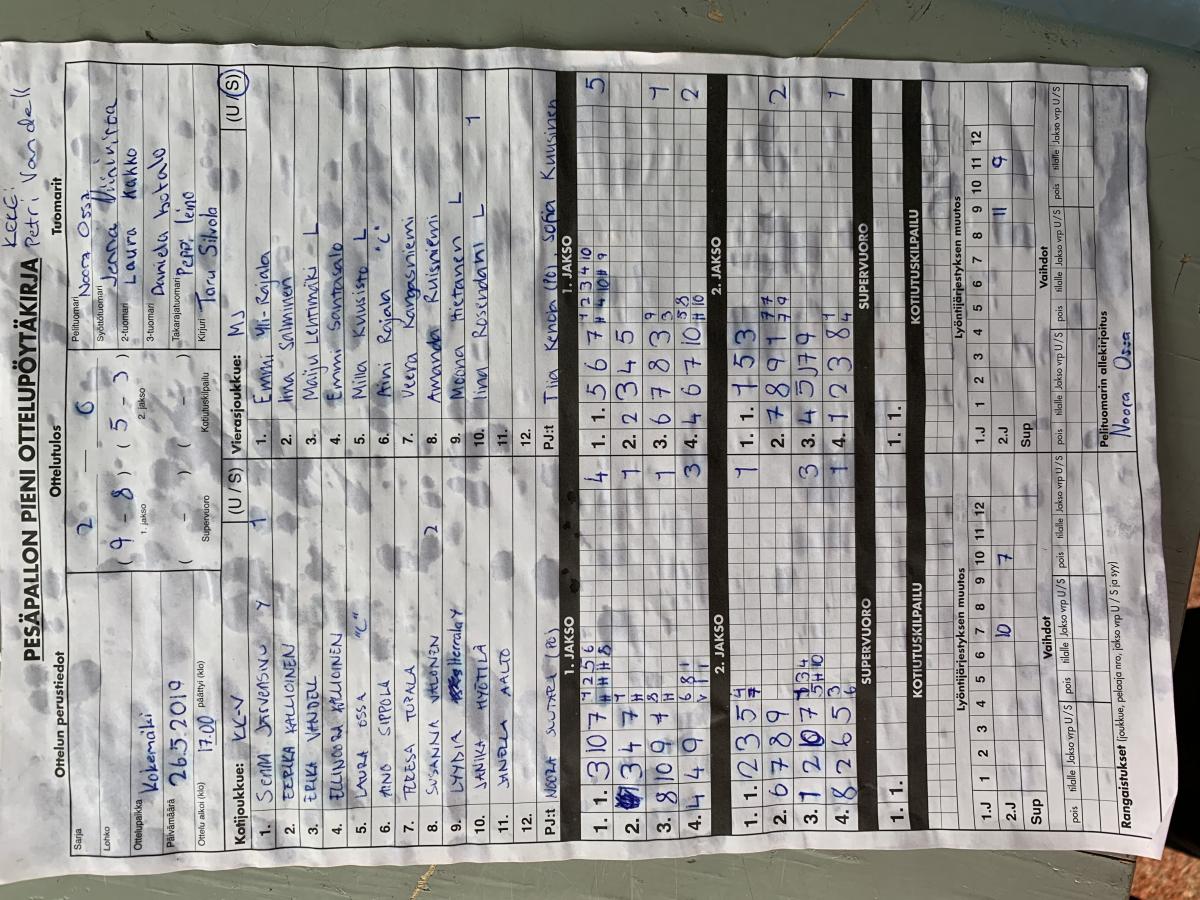 KEKE:
PESÄPALLON PIENI OTTELUPÖYTÄKIRJA Petri Vandell
Ottelun perustiedot
Sarja
Lohko
Ottelupaikka Kokemäki
Päivämäärä 26.5.2019
Ottelu alkoi (klo) 17.00 päättyi (klo)
Ottelutulos
2 — 0
( 9 - 8 ) ( 5 - 3 )
1. jakso 2. jakso
( - ) ( - )
Supervuoro Kotiutuskilpailu
Tuomarit
Pelituomari Noora Ossa
Syöttötuomari Jenna Viinivirta
2-tuomari Laura Kahko
3-tuomari Daniela Isotalo
Takarajatuomari Peppi Leino
Kirjuri Taru Silvola
Kotijoukkue: KK-V (U / S)
1. SENNI JÄRVENSIVU Y 1
2. EERIKA KALLIOINEN
3. ERIKA VANDELL
4. ELLINOORA KALLIOINEN
5. LAURA OSSA "C"
6. AINO SIPPOLA
7. TERESA TUPALA
8. SUSANNA VALONEN 2
9. LYYDIA Herrala Y
10. JANIKA HYÖTILÄ
11. JANELLA AALTO
12.
PJ:t NOORA (PO)
Vierasjoukkue: MJ (U / S)
1. Emmi Yli-Rajala
2. Iina Salminen
3. Maiju Lehtimäki L
4. Emmi Santasalo
5. Milla Kuusisto L
6. Aini Rajala "C"
7. Veera Kangasniemi
8. Amanda Ruisniemi
9. Moona Hietanen L
10. Iina Rosendahl L 1
11.
12.
PJ:t Tiia Kenoha (PO), Sofia Kuusinen
1. JAKSO 1. JAKSO
1. 1. 3 10 7 1 2 5 6 4
2. 3 4 7 1
3. 8 10 9 1 1
4. 4 4 9 1 3
1. 1. 5 6 7 1 2 3 4 10 5
2. 2 3 4 5
3. 6 7 8 3 1
4. 4 6 7 10 2
2. JAKSO 2. JAKSO
1. 1. 2 3 5 1
2. 6 7 8 9
3. 1 2 10 7 3
4. 8 2 6 5 1
1. 1. 1 5 3
2. 7 8 9 1 2
3. 4 5 J7 9
4. 1 2 3 8 1
SUPERVUORO SUPERVUORO
1. 1.
1. 1.
KOTIUTUSKILPAILU KOTIUTUSKILPAILU
Lyöntijärjestyksen muutos Lyöntijärjestyksen muutos
1.J 1 2 3 4 5 6 7 8 9 10 11 12
2.J 10 7
Sup
1.J 1 2 3 4 5 6 7 8 9 10 11 12
2.J 11 9
Sup
Vaihdot Vaihdot
pois tilalle Jakso vrp U / S pois tilalle Jakso vrp U / S pois tilalle Jakso vrp U / S
pois tilalle Jakso vrp U / S pois tilalle Jakso vrp U / S pois tilalle Jakso vrp U / S
Rangaistukset (joukkue, pelaaja nro, jakso vrp U / S ja syy)
Pelituomarin allekirjoitus
Noora Ossa